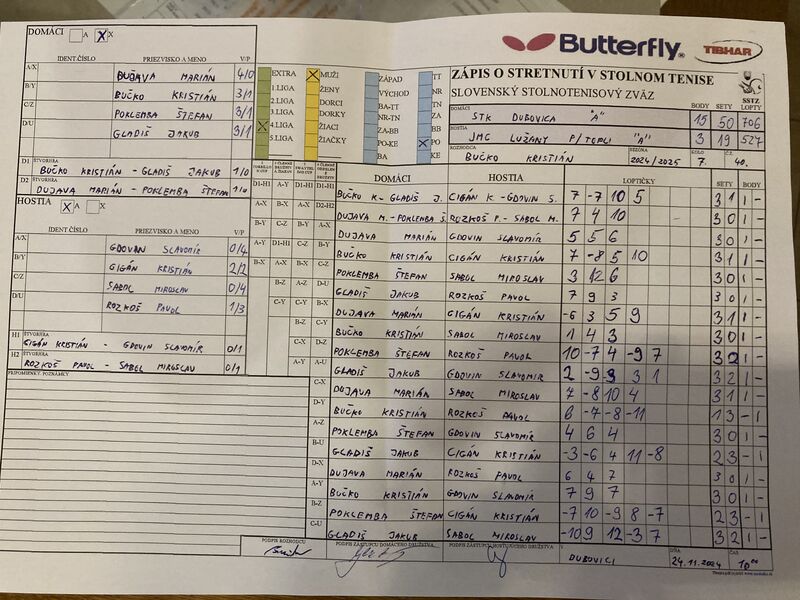 DOMÁCI A X X
Butterfly TIBHAR
IDENT.ČÍSLO PRIEZVISKO A MENO V/P
ZÁPIS O STRETNUTÍ V STOLNOM TENISE
SLOVENSKÝ STOLNOTENISOVÝ ZVÄZ SSTZ
A/X DUJAVA MARIÁN 4/0
B/Y BUČKO KRISTIÁN 3/1
C/Z POKLEMBA ŠTEFAN 3/1
D/U GLADIŠ JAKUB 3/1
EXTRA
1.LIGA
2.LIGA
3.LIGA
X 4.LIGA
5.LIGA
X MUŽI
ŽENY
DORCI
DORKY
ŽIACI
ŽIAČKY
ZÁPAD
VÝCHOD
BA-TT
NR-TN
ZA-BB
PO-KE
BA
TT
NR
TN
ZA
BB
X PO
KE
DOMÁCI STK DUBOVICA "A"
HOSTIA JMC LUŽANY P/TOPLI "A"
BODY SETY LOPTY
15 50 706
3 19 527
ROZHODCA BUČKO KRISTIÁN
SEZÓNA 2024/2025
KOLO 7.
Č. 40.
D1 ŠTVORHRA BUČKO KRISTIÁN - GLADIŠ JAKUB 1/0
D2 ŠTVORHRA DUJAVA MARIÁN - POKLEMBA ŠTEFAN 1/0
HOSTIA X A X
IDENT ČÍSLO PRIEZVISKO A MENO V/P
A/X GDOVIN SLAVOMÍR 0/4
B/Y CIGÁN KRISTIÁN 2/2
C/Z SABOL MIROSLAV 0/4
D/U ROZKOŠ PAVOL 1/3
H1 ŠTVORHRA CIGÁN KRISTIAN - GDOVIN SLAVOMÍR 0/1
H2 ŠTVORHRA ROZKOŠ PAVOL - SABOL MIROSLAV 0/1
PRIPOMIENKY, POZNÁMKY
DOMÁCI HOSTIA LOPTIČKY SETY BODY
D1-H1 BUČKO K - GLADIŠ J. CIGÁN K - GDOVIN S. 7 -7 10 5 3 1 1 -
D2-H2 DUJAVA M. - POKLEMBA Š. ROZKOŠ P. - SABOL M. 7 4 10 3 0 1 -
A-X DUJAVA MARIÁN GDOVIN SLAVOMÍR 5 5 6 3 0 1 -
B-Y BUČKO KRISTIÁN CIGÁN KRISTIÁN 7 -8 5 10 3 1 1 -
C-Z POKLEMBA ŠTEFAN SABOL MIROSLAV 3 12 6 3 0 1 -
D-U GLADIŠ JAKUB ROZKOŠ PAVOL 7 9 3 3 0 1 -
A-Y DUJAVA MARIÁN CIGÁN KRISTIÁN -6 3 5 9 3 1 1 -
B-Z BUČKO KRISTIÁN SABOL MIROSLAV 1 4 3 3 0 1 -
POKLEMBA ŠTEFAN ROZKOŠ PAVOL 10 -7 4 -9 7 3 2 1 -
GLADIŠ JAKUB GDOVIN SLAVOMÍR 2 -9 3 1 3 2 1 -
C-X DUJAVA MARIÁN SABOL MIROSLAV 7 -8 10 4 3 1 1 -
D-Y BUČKO KRISTIÁN ROZKOŠ PAVOL 6 -7 -8 -11 1 3 - 1
A-Z POKLEMBA ŠTEFAN GDOVIN SLAVOMÍR 4 6 4 3 0 1 -
B-U GLADIŠ JAKUB CIGÁN KRISTIÁN -3 -6 4 11 -8 2 3 - 1
D-X DUJAVA MARIÁN ROZKOŠ PAVOL 6 4 7 3 0 1 -
A-Y BUČKO KRISTIÁN GDOVIN SLAVOMÍR 7 9 7 3 0 1 -
B-Z POKLEMBA ŠTEFAN CIGÁN KRISTIÁN -7 10 -9 8 -7 2 3 - 1
C-U GLADIŠ JAKUB SABOL MIROSLAV -10 9 12 -3 7 3 2 1 -
PODPIS ROZHODCU
PODPIS ZÁSTUPCU DOMÁCEHO DRUŽSTVA
PODPIS ZÁSTUPCU HOSŤUJÚCEHO DRUŽSTVA
V DUBOVICI
DŇA 24.11.2024
ČAS 10°°